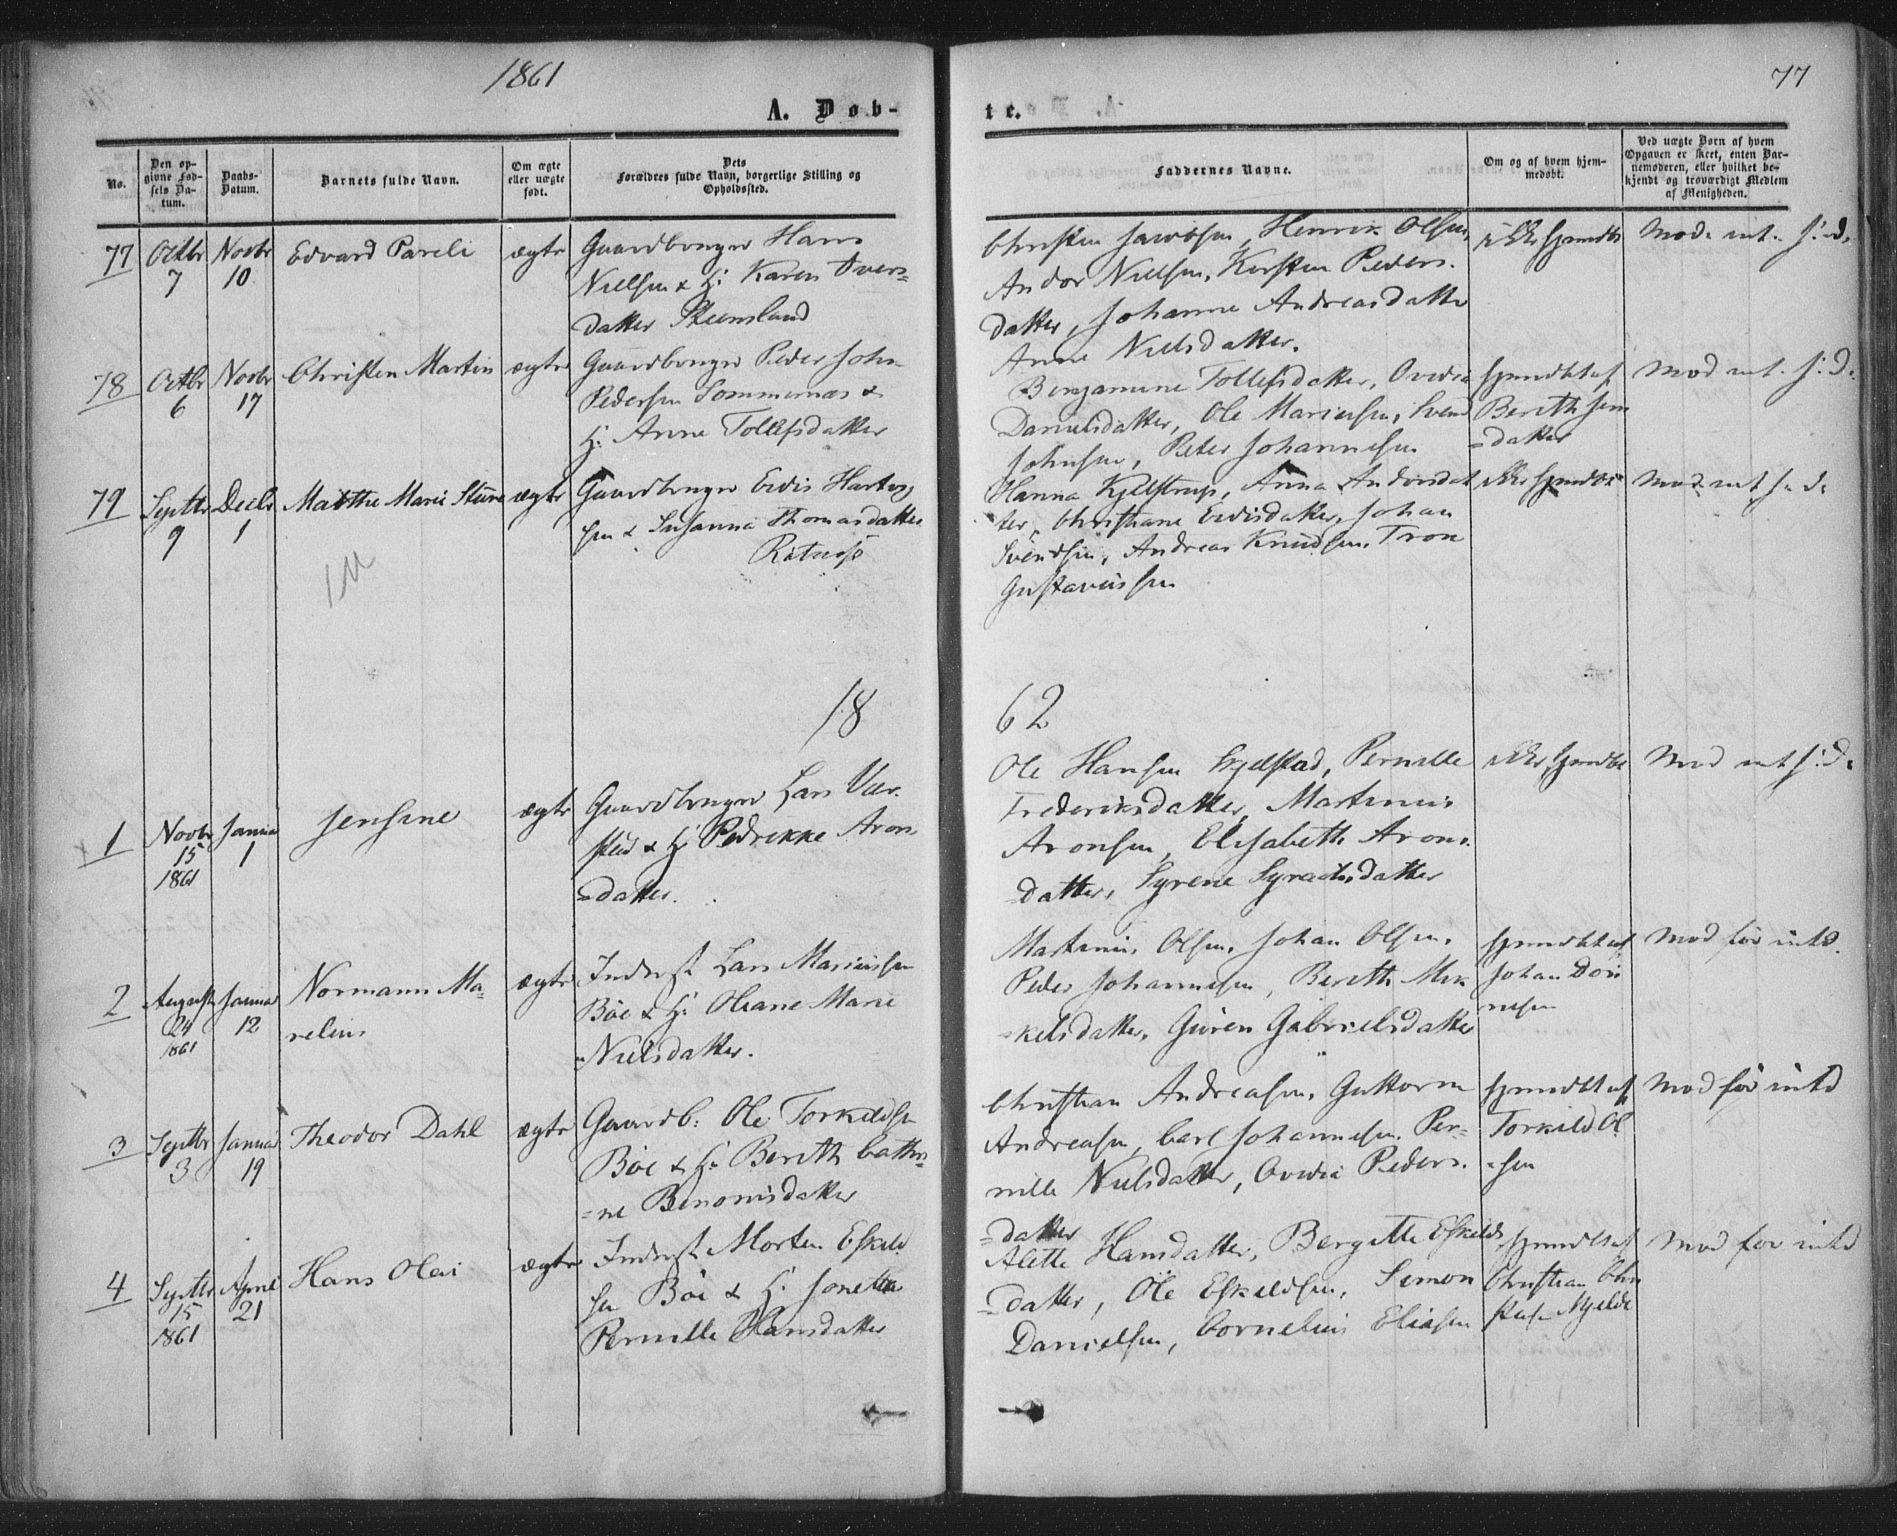 1861
77
A. Døb-
te.
No.
Den op-
givne Fød-
sels Da-
tum.
Daabs-
Datum.
Barnets fulde Navn.
Om ægte
eller uægte
født.
Dets
Forældres fulde Navn, borgerlige Stilling og
Opholdssted.
Faddernes Navne.
Om og af hvem hjem-
medøbt.
Ved uægte Børn af hvem
Opgaven er skeet, enten Bar-
nemoderen, eller hvilket be-
kjendt og troværdigt Medlem
af Menigheden.
77
Octbr
7
Novbr
10
Edvard Pareli
ægte
Gaardbruger Hans
Nielsen & H: Karen Ivers=
datter
Christen Jacobsen, Henrik Olsen,
Andor Nielsen, Kirsten Peders.
datter, Johanne Andreasdatter
Anne Nielsdatter.
ikke hjemdbt
78
Octbr
6
Novbr
17
Christen Martin
ægte
Gaardbruger Peder John
Pedersen Sommernæs &
H: Anne Tollefsdatter
Benjamine Tollefsdatter, Ovidia
Danielsdatter, Ole Mariusen, Svend
Johnsen, Peter Johannesen
hjemdbt af
Bereth Jens
=datter
79
Septbr
9
Decbr
1
Marthe Marie Sture
ægte
Gaardbruger Evis Hartvig
sen & Susanna Thomasdatter
Hanna Kjelstrup, Anna Andorsdat
ter, Christiane Evisdatter, Johan
Svendsen, Andreas Knudsen, Tron
Gustaviussen
ikke hjemdbt
18
62
1
Novbr
15
1861
Januar
1
Jensine
ægte
Gaardbruger Lars Vær
sted & H: Pedrikke Aron
=datter.
Ole Hansen Kjelstad, Pernille
Frederiksdatter, Martinus
Aronsen, Elisabeth Arons.
datter, Syrene Syrachsdatter
ikke hjemdbt
2
August
24
1861
Januar
12
Normann Ma=
relius
ægte
Inderst Lars Mariussen
Böe & H: Oliane Marie
Nielsdatter.
Martinus Olsen, Johan Olsen,
Peder Johannesen, Bereth Mik
=kelsdatter, Guren Gabrielsdatter
hjemdbt af
Johan Dön
nesen
Mod før intd.
3
Septbr
3
Januar
19
Theodor Dahl
ægte
Gaardb: Ole Torkildsen
Böe & H: Bereth Cathri=
=ne Benonisdatter
Christian Andreasen, Guttorm
Andreasen, Carl Johannesen, Per=
nille Nielsdatter, Ovidia Peders.
=datter
hjemdbt af
Torkild Ol
=sen
Mod før intd
4
Septbr
15
1861
April
21
Hans Olai
ægte
Inderst Morten Eskild
sen Böe & H: Jonetta
Pernille Hansdatter
Alette Hansdatter, Bergitte Eskilds
=datter, Ole Eskildsen, Simon
Danielsen, Cornelius Eliasen
hjemdbt af
Christian Chri
stens. Mjelde
Mod før intd